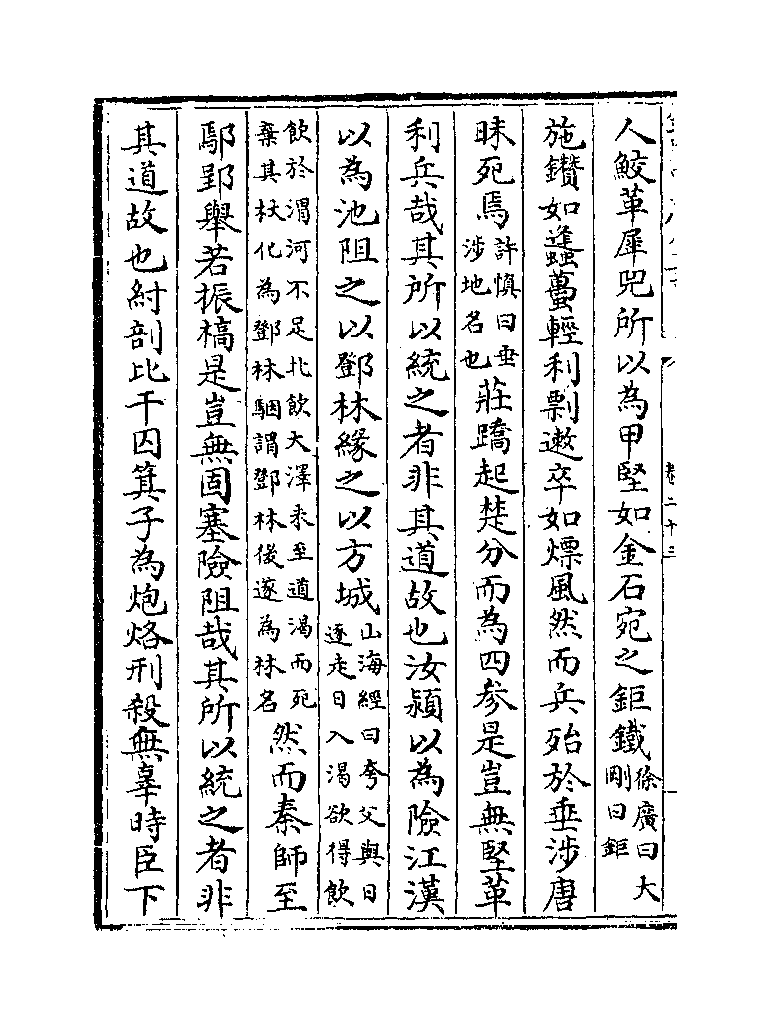 卷二十三
人鮫革犀兕所以為甲堅如金石宛之鉅鐵徐廣曰大剛曰鉅
施鑽如蠭蠆輕利剽遫卒如熛風然而兵殆於垂涉唐
昧死焉許慎曰垂涉地名也莊蹻起楚分而為四參是豈無堅革
利兵哉其所以統之者非其道故也汝潁以為險江漢
以為池阻之以鄧林緣之以方城山海經曰夸父與日逐走日入渴欲得飲
飲於渭河不足北飲大澤未至道渴而死棄其杖化為鄧林駰謂鄧林後遂為林名然而秦師至
鄢郢舉若振槁是豈無固塞險阻哉其所以統之者非
其道故也紂剖比干囚箕子為炮烙刑殺無辜時臣下